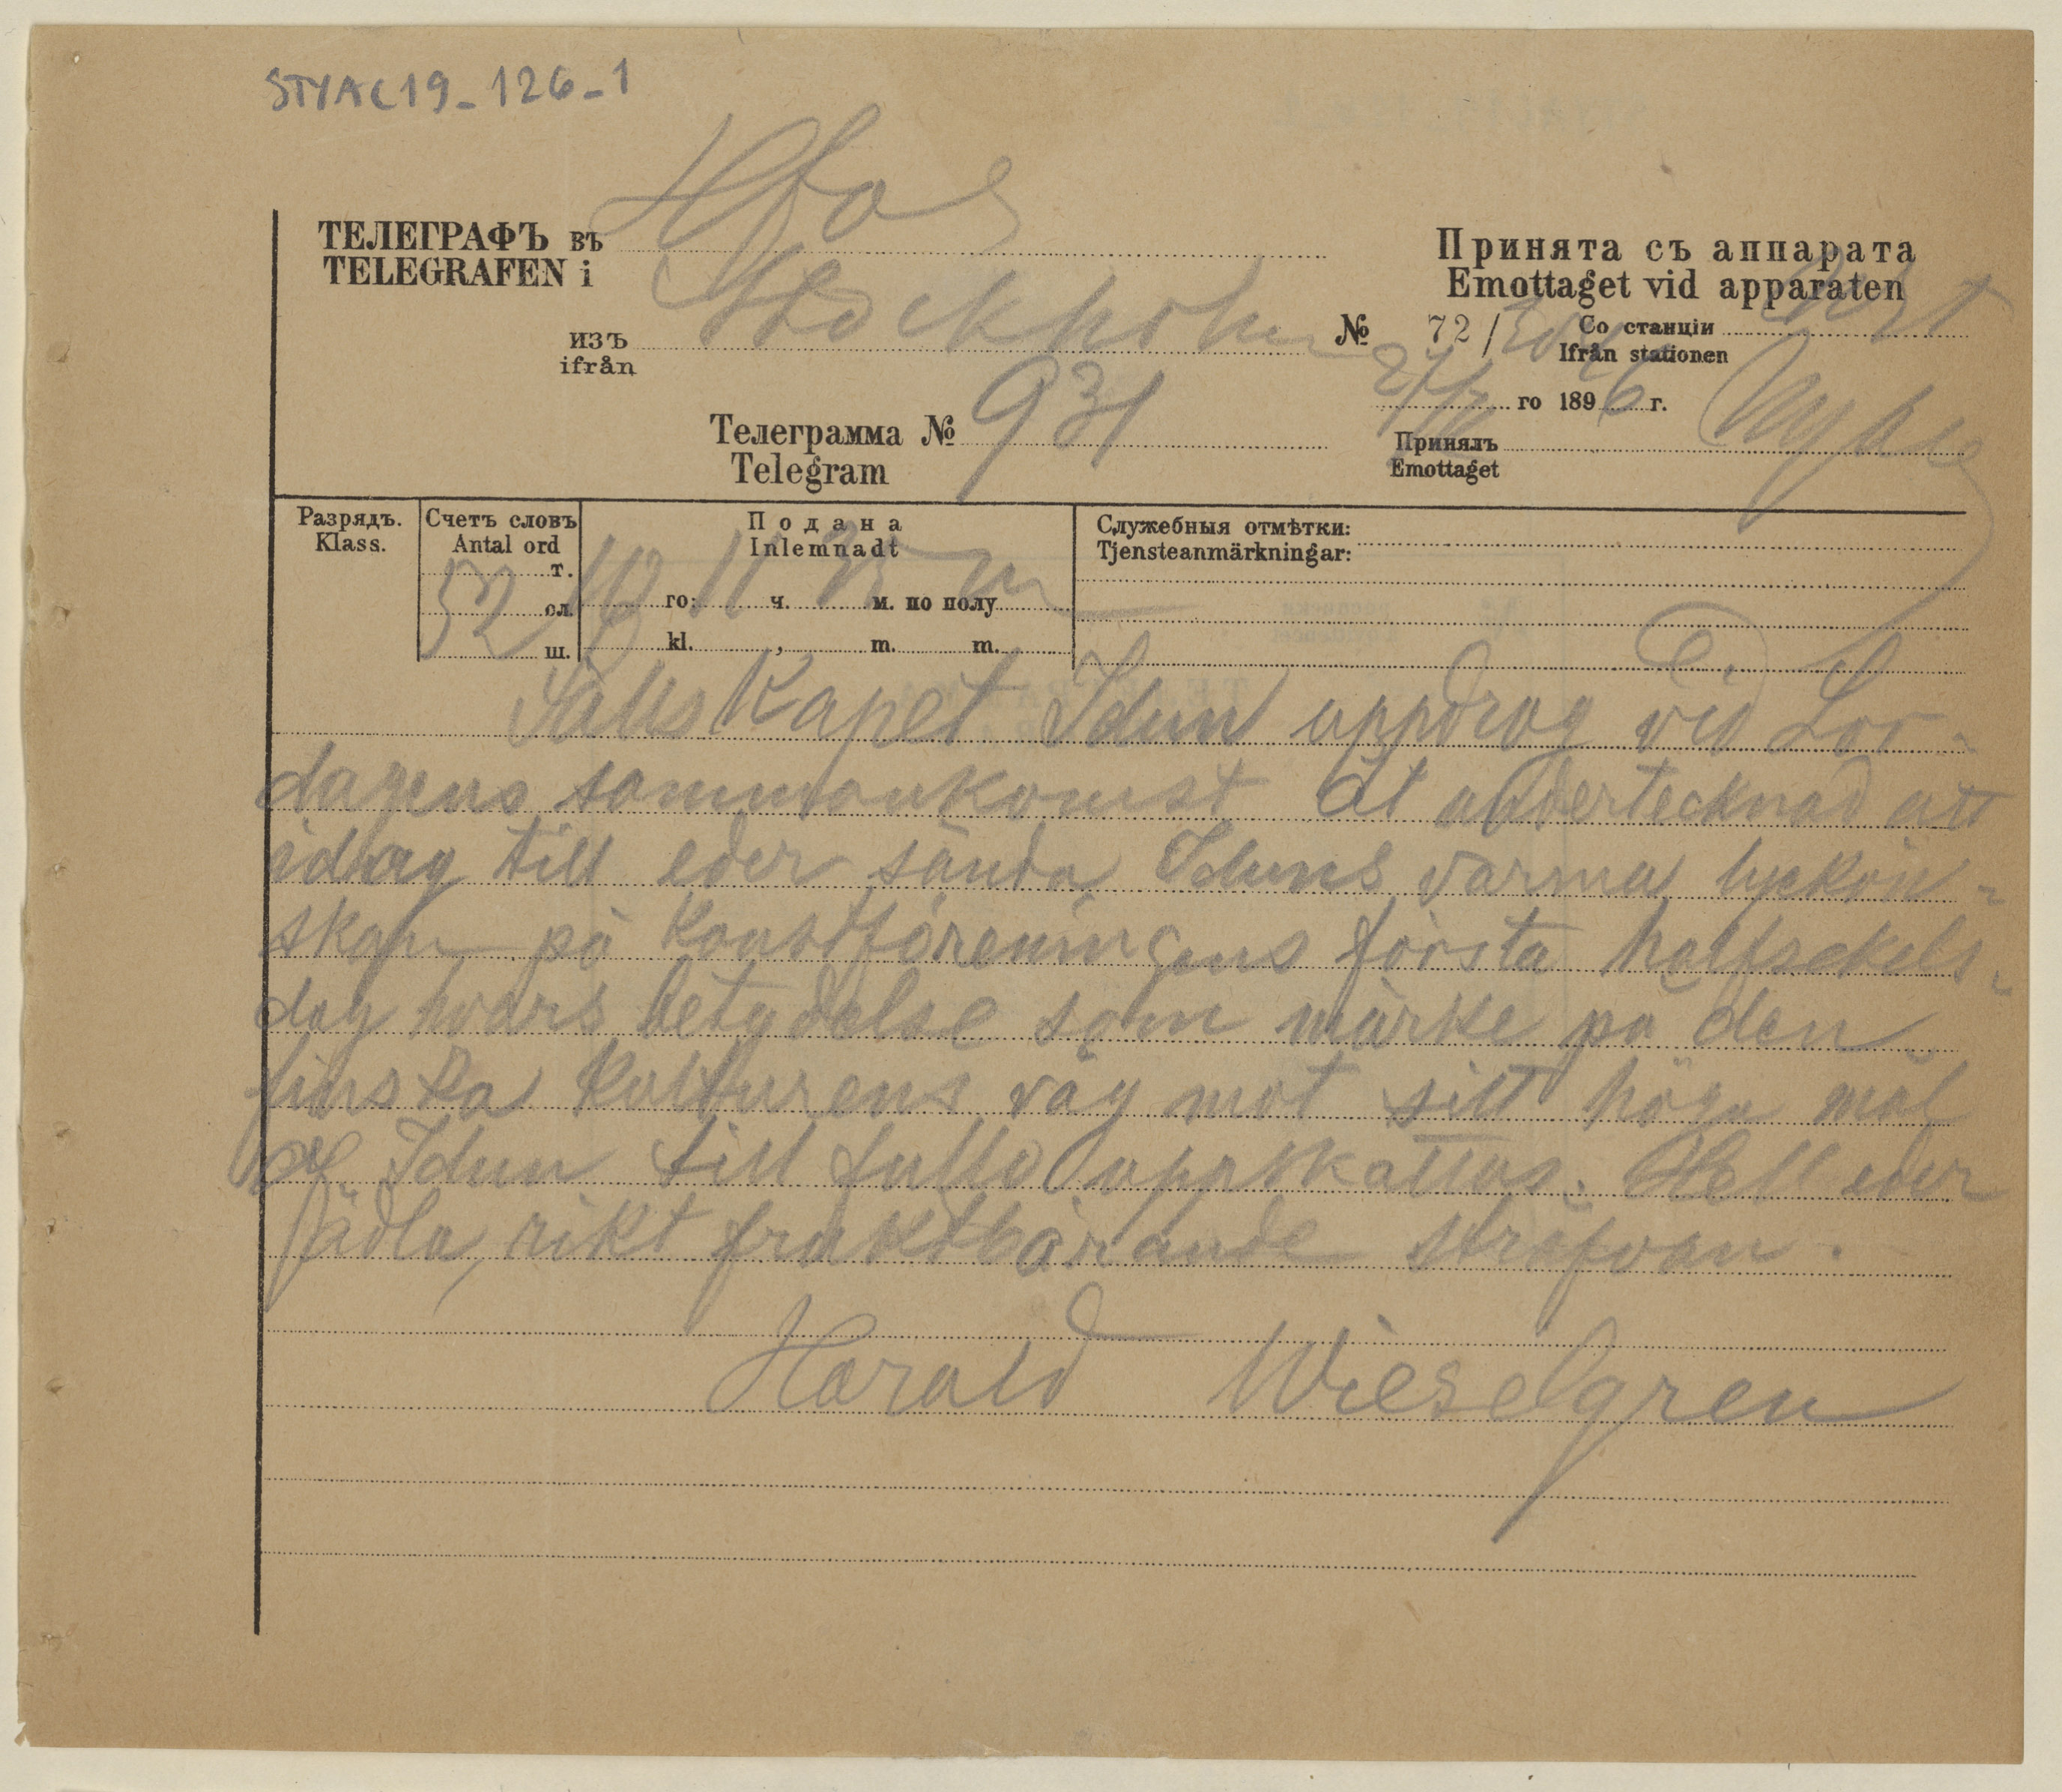 STYAC19_126_1
Hfos
ТЕЛЕГРАФЪ въ
TELEGRAFEN i
Принята съ аппарата
Emottaget vid apparaten
Stockholm
изъ
ifrån
№ 72/
Со станціи
Ifrån stationen
27/1 го 1896 г.
Телеграмма № 931
Telegram
Принялъ
Emottaget
Разрядъ.
Klass.
Счетъ словъ
Antal ord
т.
52 сл.
ш.
Подана
Inlemnadt
го: ч. м. по полу
kl. , m. m.
Служебныя отмѣтки:
Tjensteanmärkningar:
Sällskapet Idun uppdrog vid Lör-
dagens sammankomst åt undertecknad att
idag till eder sända Iduns varma lyckön-
skan på Konstföreningens första halfsekels-
dag hvars betydelse som märke på den
finska kulturens väg mot sitt höga mål
af Idun till fullo uppskattas. Hell eder
ädla, rikt fruktbärande sträfvan.
Harald Wieselgren